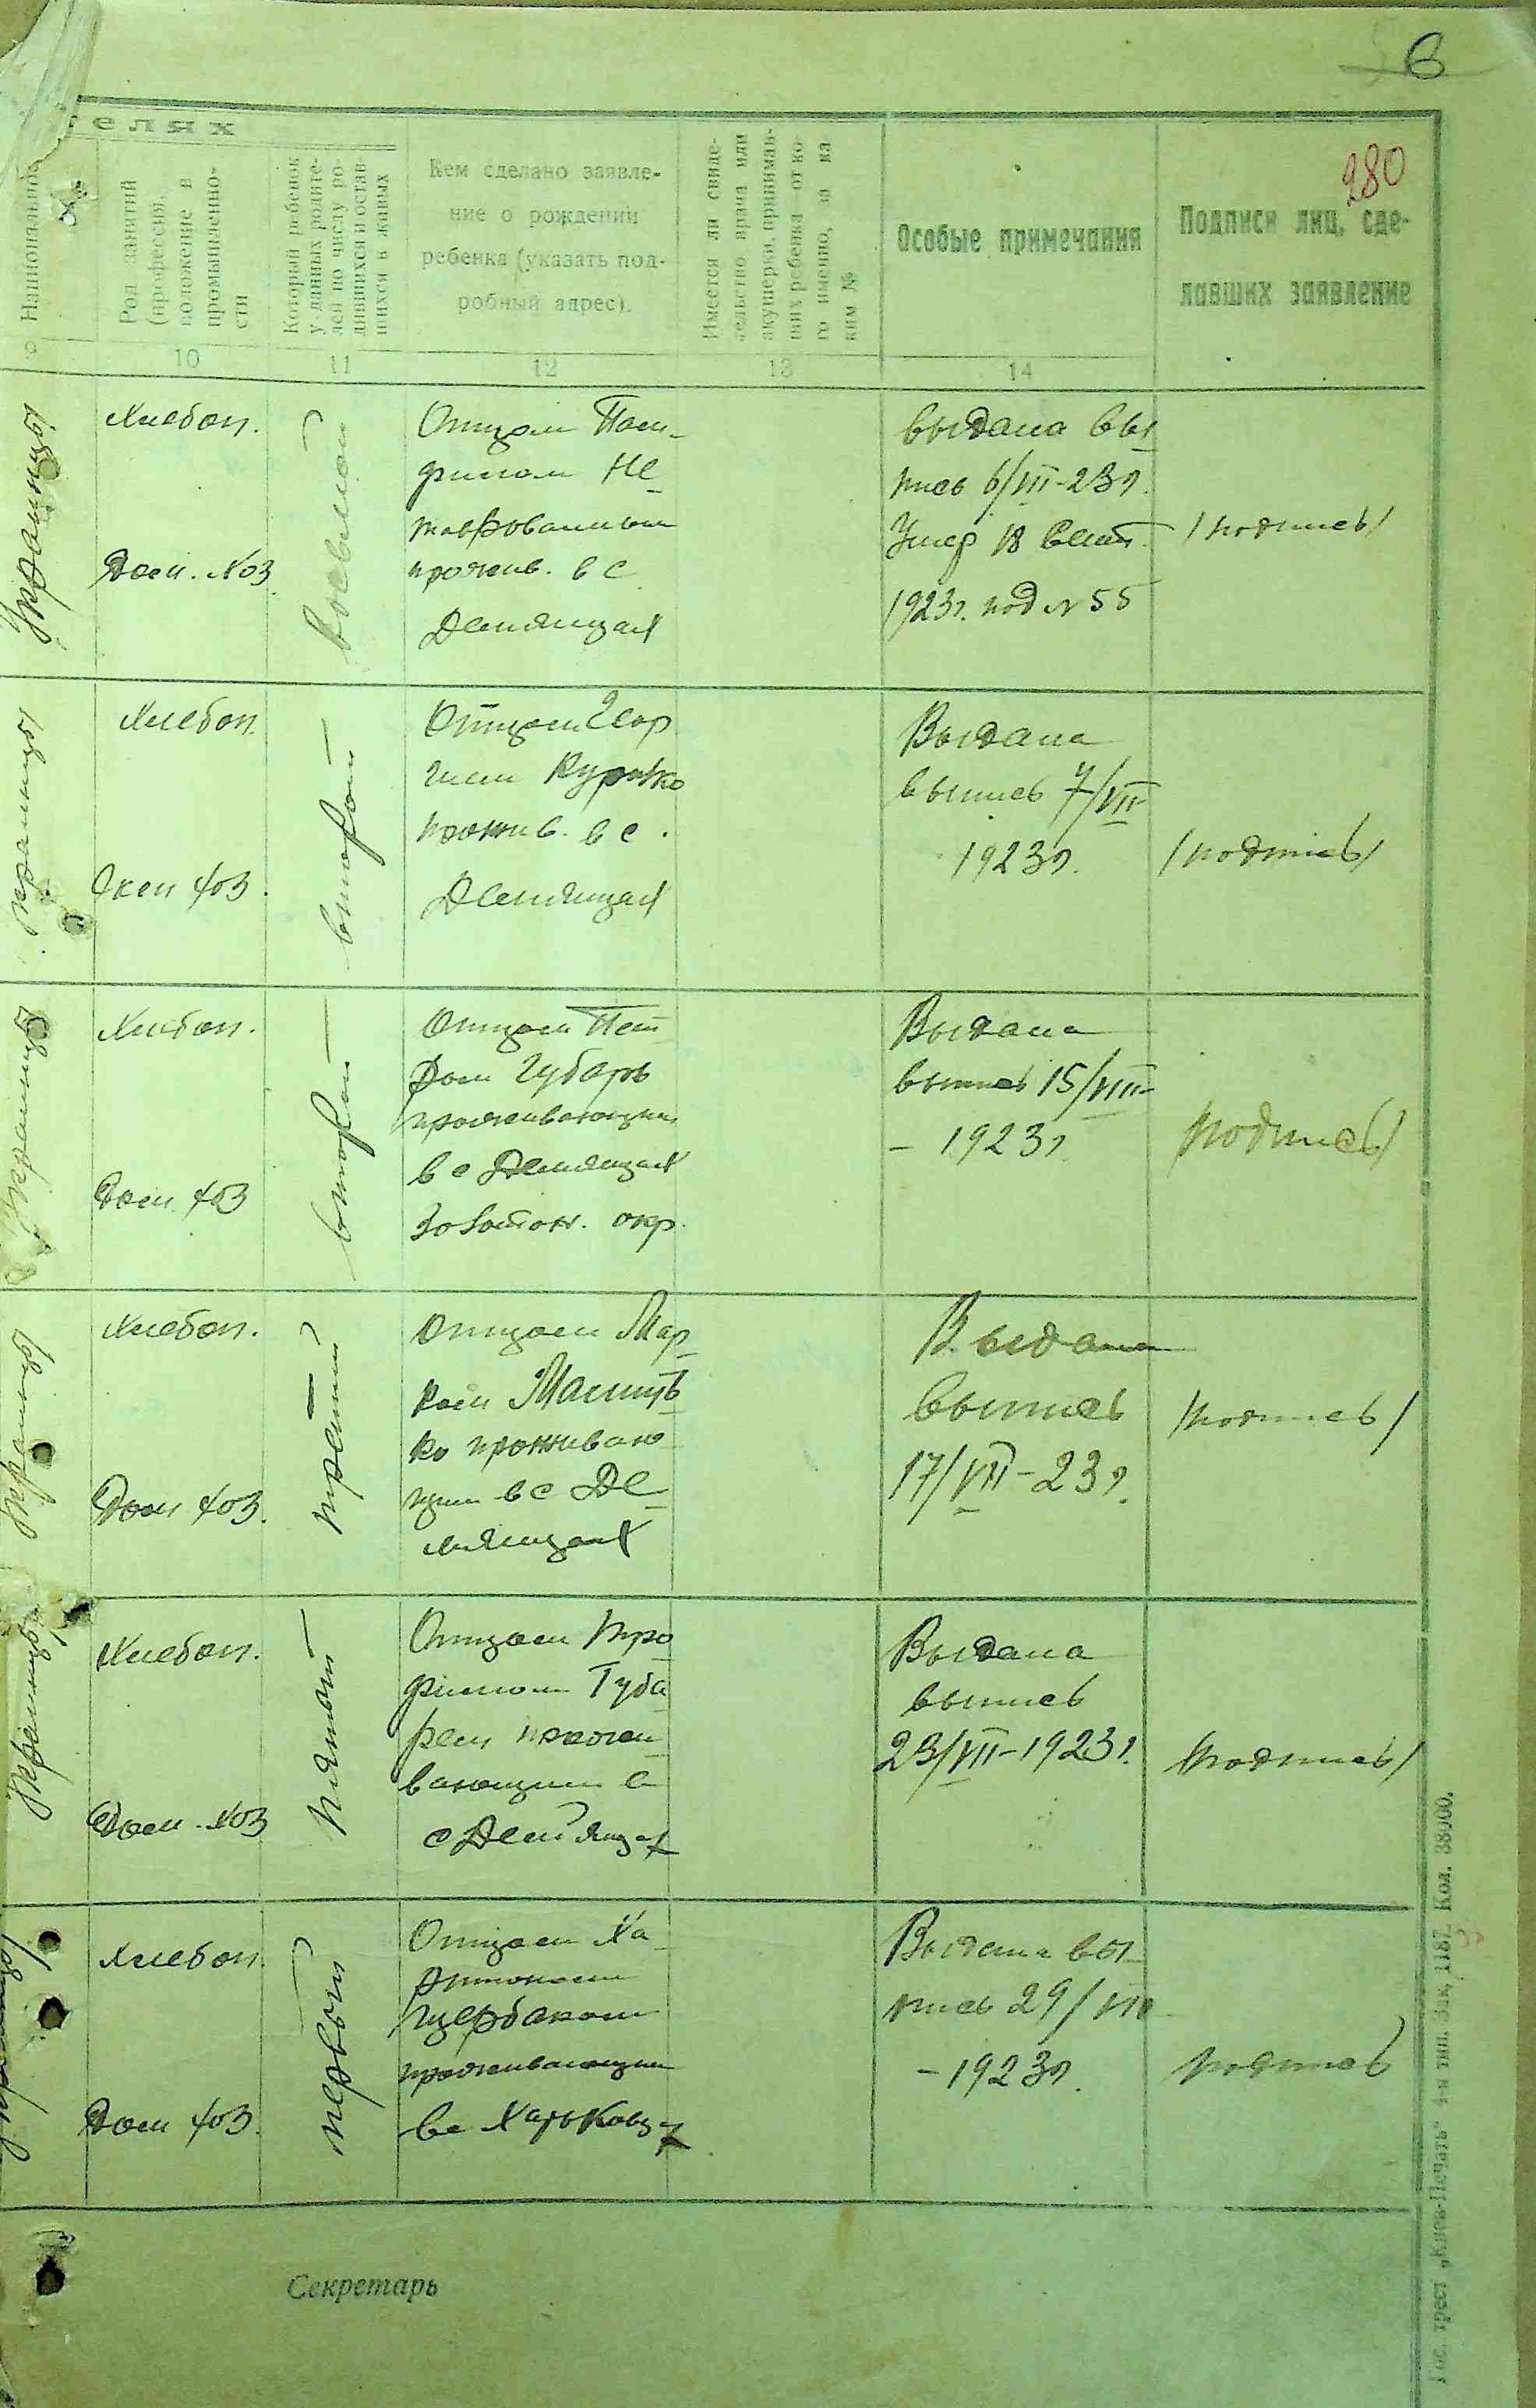 6
280
телях
Национальность
Род занятий
(профессия,
положение в
промышленно-
сти
Который ребенок
у данных родите-
лей по числу ро-
дившихся и остав-
шихся в живых
Кем сделано заявле-
ние о рождении
ребенка (указать под-
робный адрес).
Имеется ли свиде-
тельство врача или
акушерки, принимав-
ших ребенка—от ко-
го именно, за ка
ким №
Особые примечания
Подписи лиц, сде-
лавших заявление
10
11
12
13
14
Украинцы
Хлебоп.
Дом. хоз
восьмой
Отцом Пам-
филом Не
прожив. в с
Демянцах
выдана вы
пись 6/VII-23г.
Умер 18 Сент.
1923г. под № 55
/подпись/
Украинцы
Хлебоп.
хоз.
второй
Отцом Геор
гием
прожив. в с.
Демянцах
Выдана
выпись 7/VII-
1923г.
/подпись/
Украинцы
Хлебоп.
Дом хоз
второй
Отцом Пет
ром Губарь
проживающим
в с Демянцах
Золотон. окр.
Выдана
выпись 15/VIII-
- 1923г.
подпись/
Украинцы
Хлебоп.
Дом хоз.
третий
Отцом Мар
ком
ко проживаю
щим в с Де
мянцах
Выдана
выпись
17/VII-23г.
/подпись/
Украинцы
Хлебоп.
Дом. хоз
пятый
Отцом Тро
фимом Губа
рем прожи
вающим в
с Демянцах
Выдана
выпись
23/VII-1923г.
/подпись/
Украинцы
Хлебоп.
Дом хоз.
первый
Отцом Ха
ритоном
Щербаком
проживающим
в с Харьковцах
Выдана вы-
пись 29/VII
-1923г.
подпись
Секретарь
Гос. трест „Киев-Печать“ 1-я тип. Зак. 1187. Кол. 38000.